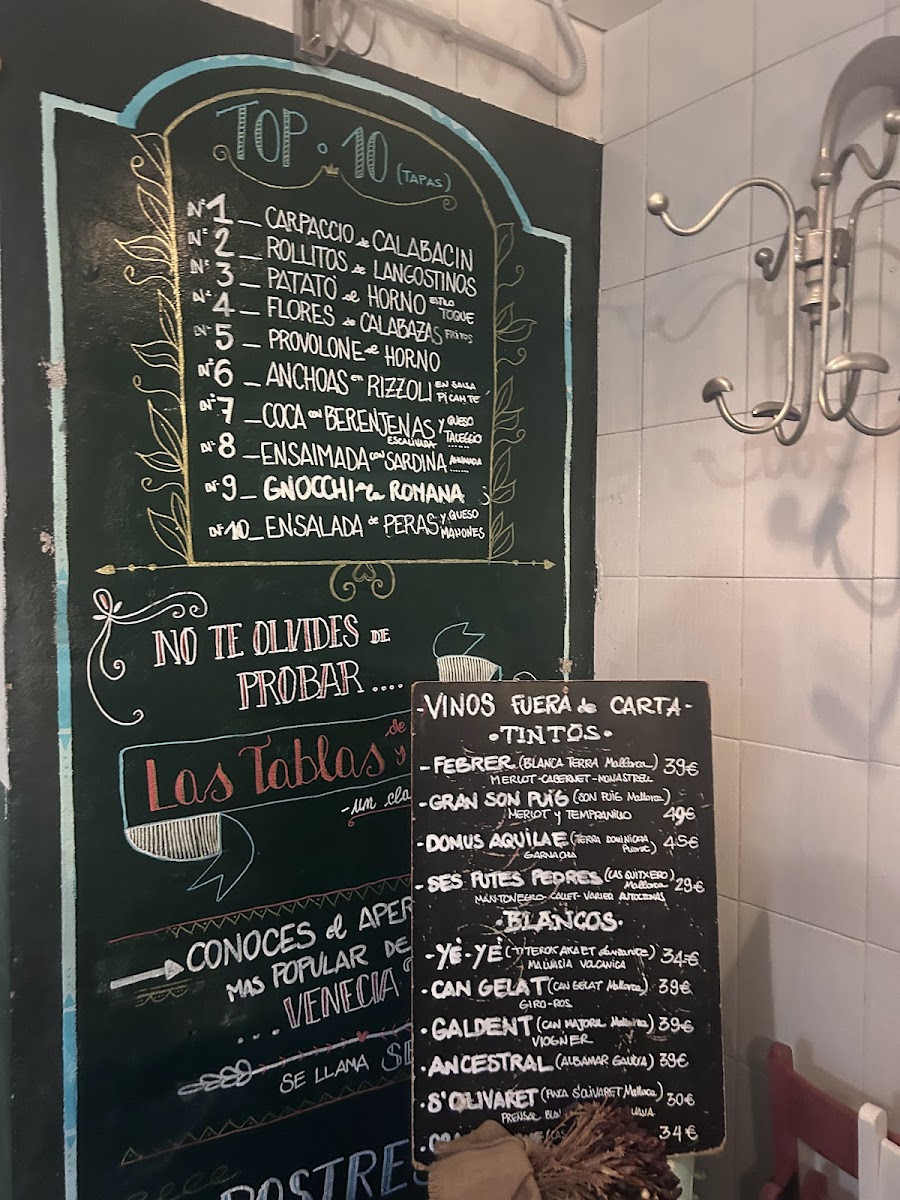 TOP · 10 (TAPAS)
Nº 1 _ CARPACCIO de CALABACIN
Nº 2 _ ROLLITOS de LANGOSTINOS
Nº 3 _ PATATO al HORNO ESTILO TOQUE
Nº 4 _ FLORES de CALABAZAS FRITOS
Nº 5 _ PROVOLONE al HORNO
Nº 6 _ ANCHOAS en RIZZOLI EN SALSA PICANTE
Nº 7 _ COCA con BERENJENAS ESCALIVADA Y QUESO TALEGGIO
Nº 8 _ ENSAIMADA con SARDINA AHUMADA
Nº 9 _ GNOCCHI a la ROMANA
Nº 10 _ ENSALADA de PERAS Y QUESO MAHONES
NO TE OLVIDES DE
PROBAR ....
Las Tablas de
y
- un cla
CONOCES el APER
MAS POPULAR DE
... VENECIA?
SE LLAMA SE
POSTRES
- VINOS FUERA de CARTA -
• TINTOS •
- FEBRER (BLANCA TERRA Mallorca) 39€
MERLOT - CABERNET - MONASTRELL
- GRAN SON PUIG (SON PUIG Mallorca)
MERLOT y TEMPRANILLO 49€
- DOMUS AQUILAE (TERRA DOMINICATA) 45€
GARNACHA
- SES PUTES PEDRES (Mallorca) 29€
MANTONEGRO - CALLET -
• BLANCOS •
- YÈ-YÈ (TITEROK AKAET Lanzarote) 34€
MALVASIA VOLCANICA
- CAN GELAT (CAN GELAT Mallorca) 39€
GIRO-ROS
- GALDENT (CAN MAJORAL Mallorca) 39€
VIOGNER
- ANCESTRAL (ALBAMAR GALICIA) 39€
- S'OLIVARET (FINCA S'OLIVARET Mallorca) 30€
PRENSAL BLAN
34€